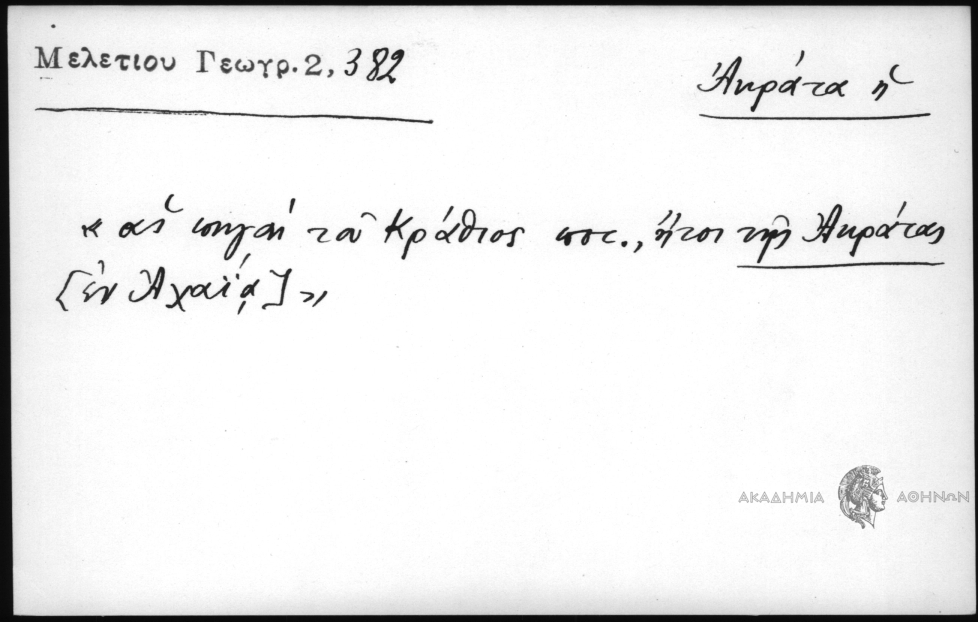 Μελετιου Γεωγρ. 2, 382
Ἀκράτα ἡ
« αἱ πηγαὶ τοῦ Κράθιος ποτ., ἤτοι τῆς Ἀκράτας
[ἐν Ἀχαΐᾳ] »
ΑΚΑΔΗΜΙΑ ΑΘΗΝΩΝ